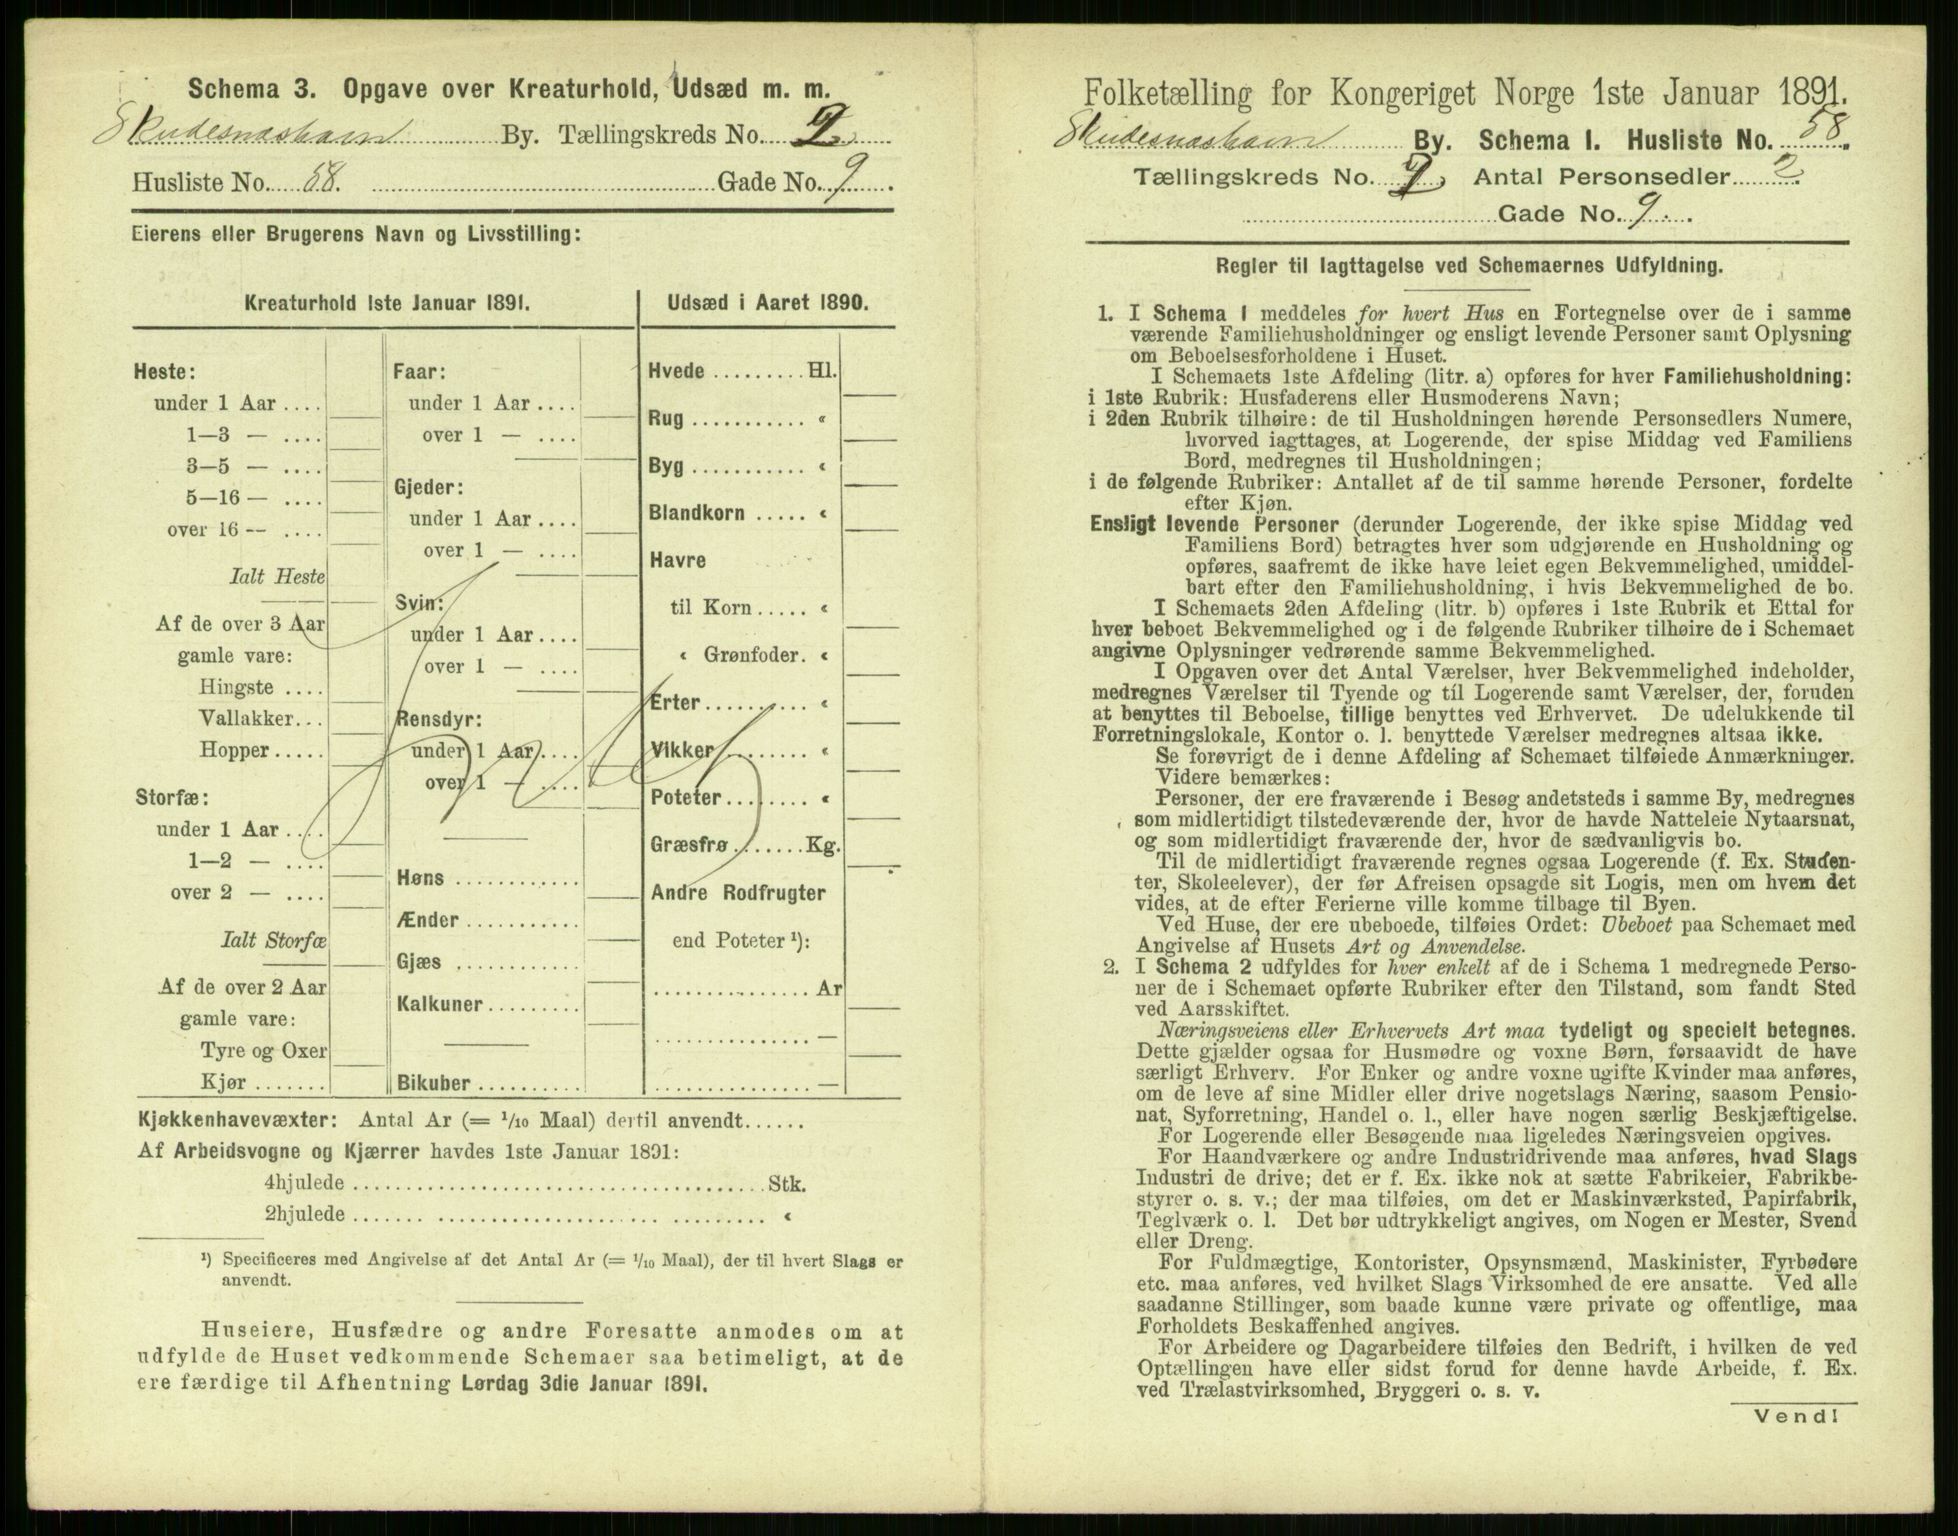 Schema 3. Opgave over Kreaturhold, Udsæd m. m.
Skudesnæshavn By. Tællingskreds No. 2
Husliste No. 58. Gade No. 9.
Eierens eller Brugerens Navn og Livsstilling:
Kreaturhold 1ste Januar 1891.
Heste:
under 1 Aar ....
1—3 — ....
3—5 — ....
5—16 — ....
over 16 — ....
Ialt Heste
Af de over 3 Aar
gamle vare:
Hingste ....
Vallakker...
Hopper .....
Storfæ:
under 1 Aar ....
1—2 — ....
over 2 — ....
Ialt Storfæ
Af de over 2 Aar
gamle vare:
Tyre og Oxer
Kjør .......
Faar:
under 1 Aar ....
over 1 — ....
Gjeder:
under 1 Aar ....
over 1 — ....
Svin:
under 1 Aar ....
over 1 — ....
Rensdyr:
under 1 Aar ....
over 1 — ....
Høns ............
Ænder ...........
Gjæs ............
Kalkuner .........
Bikuber ..........
Udsæd i Aaret 1890.
Hvede ......... Hl.
Rug ........... «
Byg ........... «
Blandkorn ..... «
Havre
til Korn ..... «
« Grønfoder. «
Erter .......... «
Vikker ........ «
Poteter ........ «
Græsfrø ....... Kg.
Andre Rodfrugter
end Poteter ¹):
............... Ar
............... —
............... —
Kjøkkenhavevæxter: Antal Ar (= 1/10 Maal) dertil anvendt......
Af Arbeidsvogne og Kjærrer havdes 1ste Januar 1891:
4hjulede ........................................ Stk.
2hjulede ........................................ «
¹) Specificeres med Angivelse af det Antal Ar (= 1/10 Maal), der til hvert Slags er
anvendt.
Huseiere, Husfædre og andre Foresatte anmodes om at
udfylde de Huset vedkommende Schemaer saa betimeligt, at de
ere færdige til Afhentning Lørdag 3die Januar 1891.
Folketælling for Kongeriget Norge 1ste Januar 1891.
Skudesnæshavn By. Schema 1. Husliste No. 58.
Tællingskreds No. 2 Antal Personsedler 2.
Gade No. 9.
Regler til Iagttagelse ved Schemaernes Udfyldning.
1. I Schema 1 meddeles for hvert Hus en Fortegnelse over de i samme
værende Familiehusholdninger og ensligt levende Personer samt Oplysning
om Beboelsesforholdene i Huset.
I Schemaets 1ste Afdeling (litr. a) opføres for hver Familiehusholdning:
i 1ste Rubrik: Husfaderens eller Husmoderens Navn;
i 2den Rubrik tilhøire: de til Husholdningen hørende Personsedlers Numere,
hvorved iagttages, at Logerende, der spise Middag ved Familiens
Bord, medregnes til Husholdningen;
i de følgende Rubriker: Antallet af de til samme hørende Personer, fordelte
efter Kjøn.
Ensligt levende Personer (derunder Logerende, der ikke spise Middag ved
Familiens Bord) betragtes hver som udgjørende en Husholdning og
opføres, saafremt de ikke have leiet egen Bekvemmelighed, umiddel-
bart efter den Familiehusholdning, i hvis Bekvemmelighed de bo.
I Schemaets 2den Afdeling (litr. b) opføres i 1ste Rubrik et Ettal for
hver beboet Bekvemmelighed og i de følgende Rubriker tilhøire de i Schemaet
angivne Oplysninger vedrørende samme Bekvemmelighed.
I Opgaven over det Antal Værelser, hver Bekvemmelighed indeholder,
medregnes Værelser til Tyende og til Logerende samt Værelser, der, foruden
at benyttes til Beboelse, tillige benyttes ved Erhvervet. De udelukkende til
Forretningslokale, Kontor o. l. benyttede Værelser medregnes altsaa ikke.
Se forøvrigt de i denne Afdeling af Schemaet tilføiede Anmærkninger.
Videre bemærkes:
Personer, der ere fraværende i Besøg andetsteds i samme By, medregnes
som midlertidigt tilstedeværende der, hvor de havde Natteleie Nytaarsnat,
og som midlertidigt fraværende der, hvor de sædvanligvis bo.
Til de midlertidigt fraværende regnes ogsaa Logerende (f. Ex. Studen-
ter, Skoleelever), der før Afreisen opsagde sit Logis, men om hvem det
vides, at de efter Ferierne ville komme tilbage til Byen.
Ved Huse, der ere ubeboede, tilføies Ordet: Ubeboet paa Schemaet med
Angivelse af Husets Art og Anvendelse.
2. I Schema 2 udfyldes for hver enkelt af de i Schema 1 medregnede Perso-
ner de i Schemaet opførte Rubriker efter den Tilstand, som fandt Sted
ved Aarsskiftet.
Næringsveiens eller Erhvervets Art maa tydeligt og specielt betegnes.
Dette gjælder ogsaa for Husmødre og voxne Børn, forsaavidt de have
særligt Erhverv. For Enker og andre voxne ugifte Kvinder maa anføres,
om de leve af sine Midler eller drive nogetslags Næring, saasom Pensio-
nat, Syforretning, Handel o. l., eller have nogen særlig Beskjæftigelse.
For Logerende eller Besøgende maa ligeledes Næringsveien opgives.
For Haandværkere og andre Industridrivende maa anføres, hvad Slags
Industri de drive; det er f. Ex. ikke nok at sætte Fabrikeier, Fabrikbe-
styrer o. s. v.; der maa tilføies, om det er Maskinværksted, Papirfabrik,
Teglværk o. l. Det bør udtrykkeligt angives, om Nogen er Mester, Svend
eller Dreng.
For Fuldmægtige, Kontorister, Opsynsmænd, Maskinister, Fyrbødere
etc. maa anføres, ved hvilket Slags Virksomhed de ere ansatte. Ved alle
saadanne Stillinger, som baade kunne være private og offentlige, maa
Forholdets Beskaffenhed angives.
For Arbeidere og Dagarbeidere tilføies den Bedrift, i hvilken de ved
Optællingen have eller sidst forud for denne havde Arbeide, f. Ex.
ved Trælastvirksomhed, Bryggeri o. s. v.
Vend!